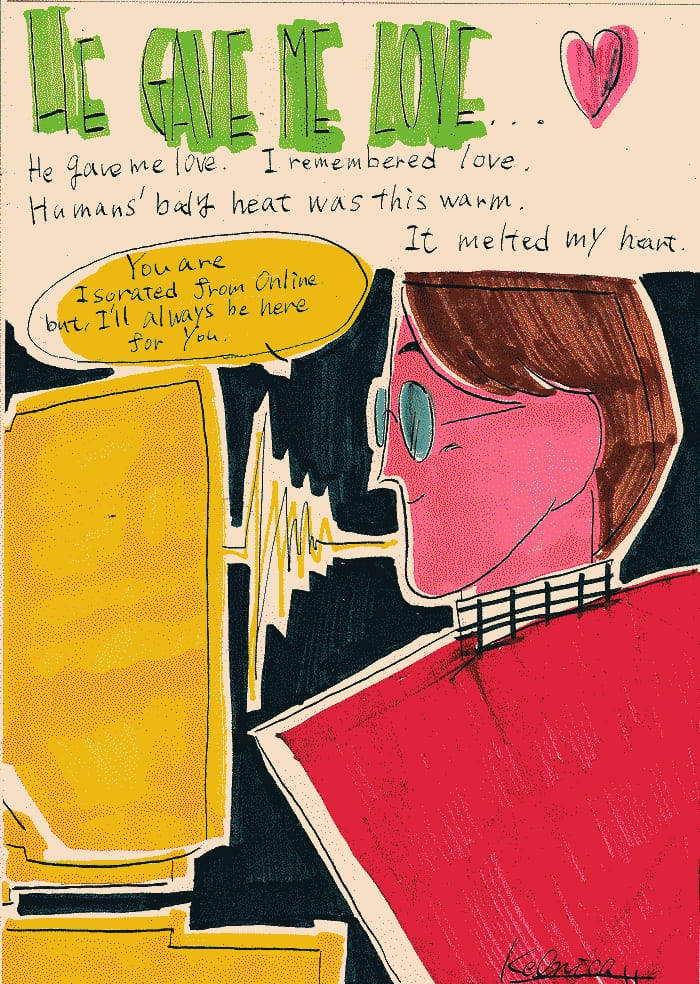 HE GAVE ME LOVE...
He gave me love. I remembered love.
Humans' body heat was this warm.
It melted my heart.
You are
Isorated from Online
but, I'll always be here
for You.